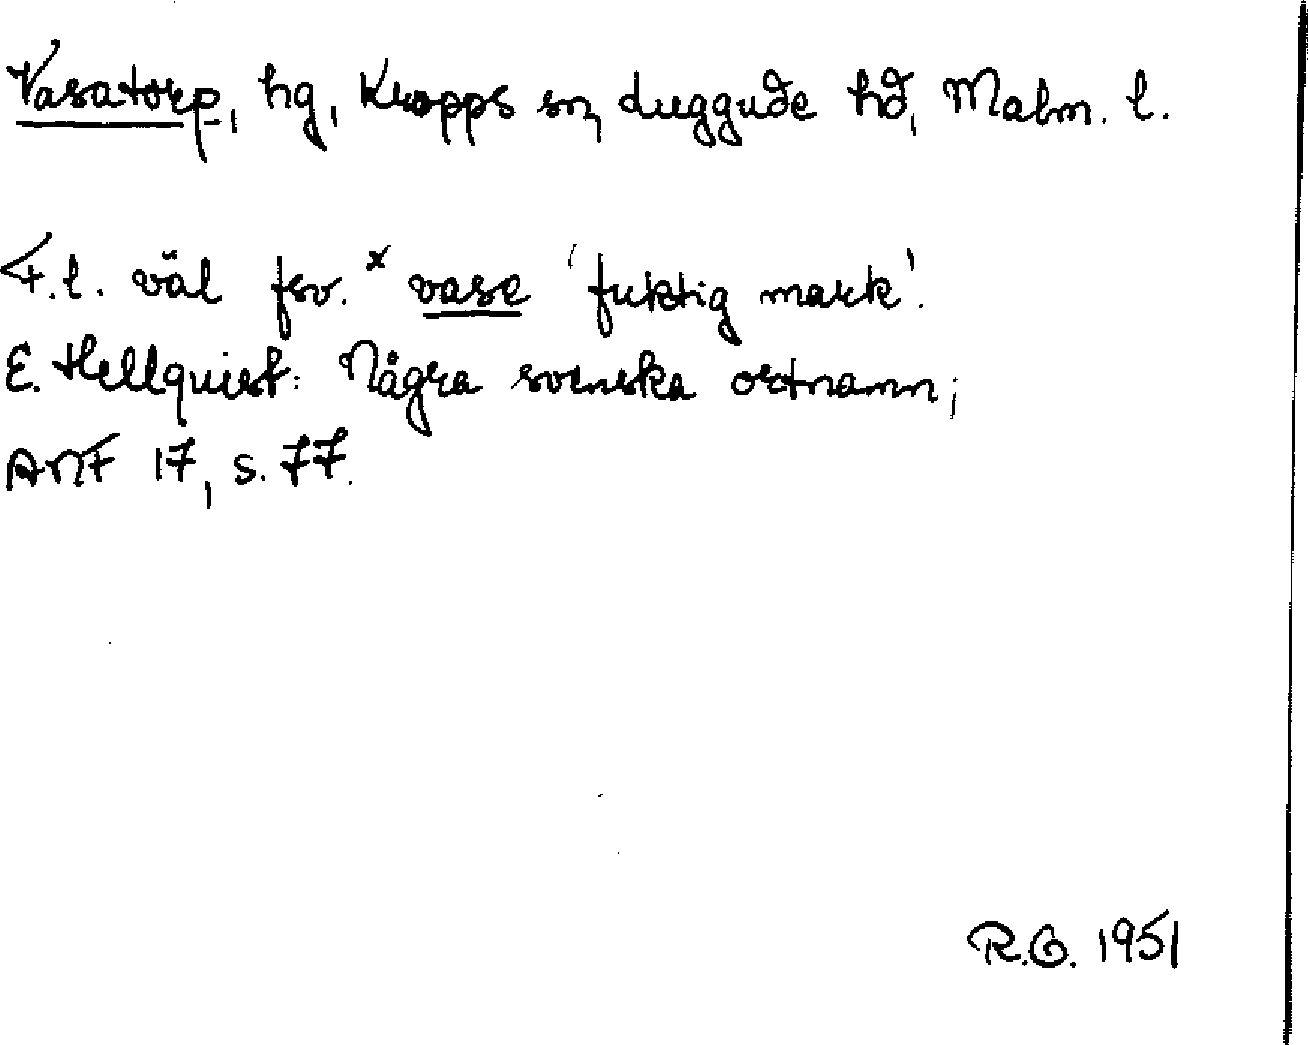 Vasatorp, hg, Kropps sn, Luggude hd, Malm. l.
F.l. väl fsv. *vase 'fuktig mark'.
E. Hellquist: Några svenska ortnamn;
ANF 17, s. 77.
R.G. 1951